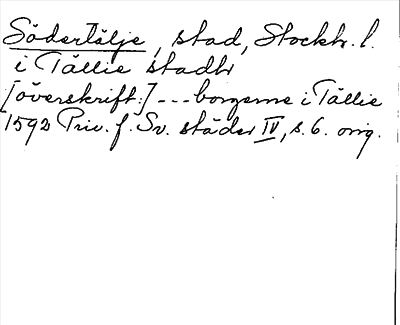 Södertälje, stad, Stockh. l.
i Tällie stadh
[överskrift:] --- borgerne i Tällie
1592 Priv. f. Sv. städer IV, s. 6. orig.